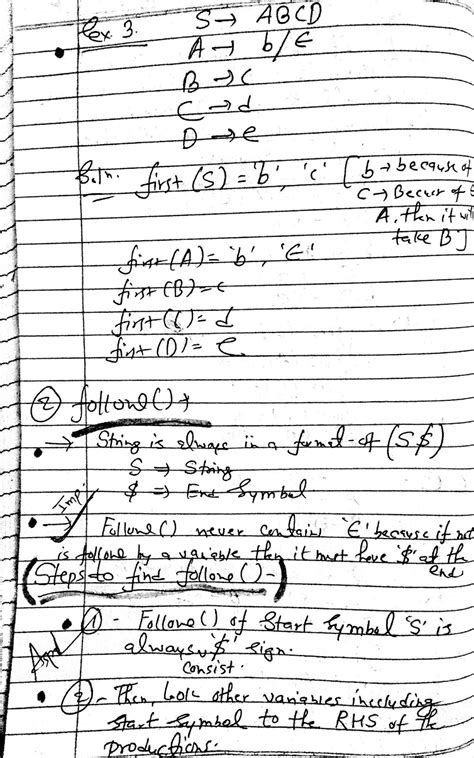 Ex 3. S → ABCD
A → b/ϵ
B → c
C → d
D → e
Soln. first (S) = 'b', 'c' [b → because of
C → Becuz of ϵ
A, then it will
take B]
first (A) = 'b', 'ϵ'
first (B) = c
first (C) = d
first (D) = e
② follow() →
→ String is always in a format of (S$)
S → String
$ ⇒ End Symbol
Imp.
→ Followe() never contains 'ϵ' because if not
is follone by a variable then it must have '$' at the
end
(Steps to find follone() -)
① - Follone() of Start Symbol 'S' is
always '$' sign.
consist.
② - Then, look other variables including
start symbol to the RHS of the
productions.